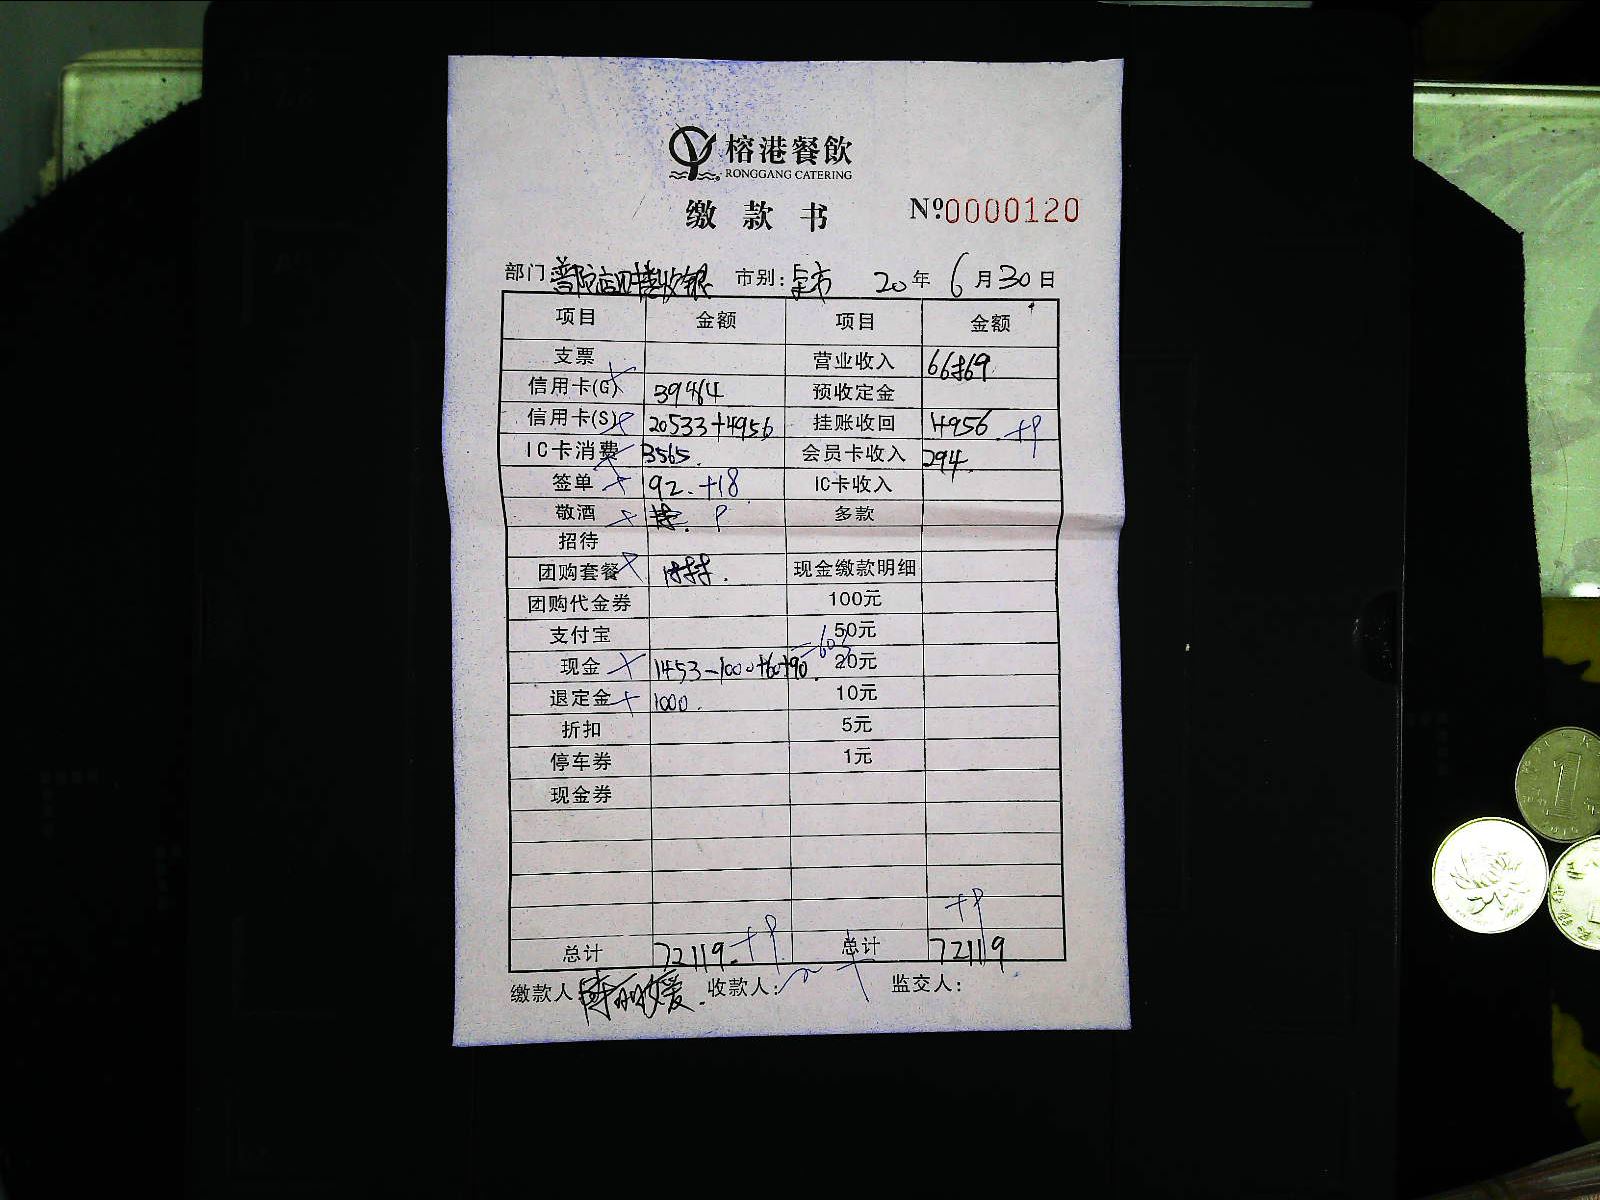 榕港餐飲
RONGGANG CATERING
缴款书 №0000120
部门 普陀店四楼收银 市别: 全市 20年6月30日
项目 金额 项目 金额
支票 营业收入 66869
信用卡(G) 39464 预收定金
信用卡(S) 20533+4956 挂账收回 4956 +9
IC卡消费 3565. 会员卡收入 294.
签单 92. +18 IC卡收入
敬酒 多款
招待
团购套餐 现金缴款明细
团购代金券 100元
支付宝 50元
现金 1453-1000+60+90 =603 20元
退定金 1000. 10元
折扣 5元
停车券 1元
现金券
+9
总计 72119. +9 总计 72119
缴款人 收款人: 监交人: